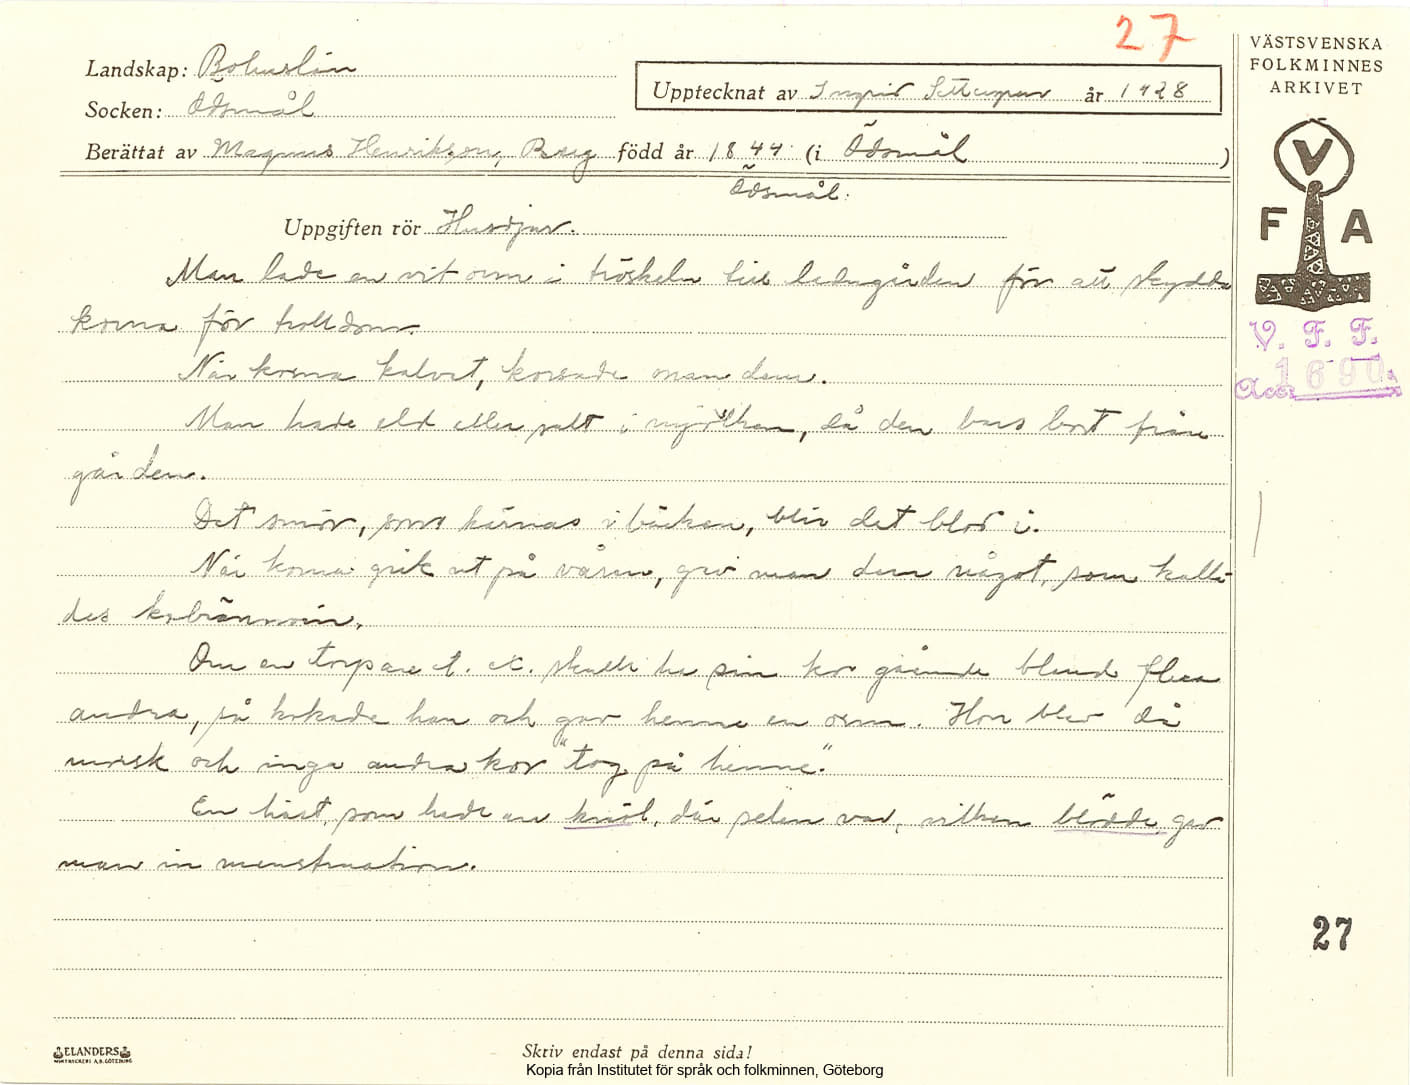 27
VÄSTSVENSKA
FOLKMINNES
ARKIVET
Landskap: Bohuslän
Upptecknat av Ingrid år 1928
Socken: Ödsmål
Berättat av Magnus Henriksson, Berg född år 1844 (i Ödsmål )
Ödsmål.
Uppgiften rör Husdjur.
V
F A
Man lade en vit orm i tröskeln till ladugården för att skydda
korna för trolldom.
V. F. F.
Acc. 1690.
När korna kalvat, korsade man dem.
Man hade eld eller salt i mjölken, då den bars bort från
gården.
Det smör, som kärnas i bäcken, blir det blod i.
När korna gick ut på våren, gav man dem något, som kalla-
des kobrännvin.
Om en torpare t. ex. skulle ha sin ko gående bland flera
andra, så kokade han och gav henne en orm. Hon blev då
morsk och inga andra kor "tog på henne".
En häst, som hade en knöl, där selen var, vilken blödde, gav
man in menstruation.
27
ELANDERS
Skriv endast på denna sida!
Kopia från Institutet för språk och folkminnen, Göteborg